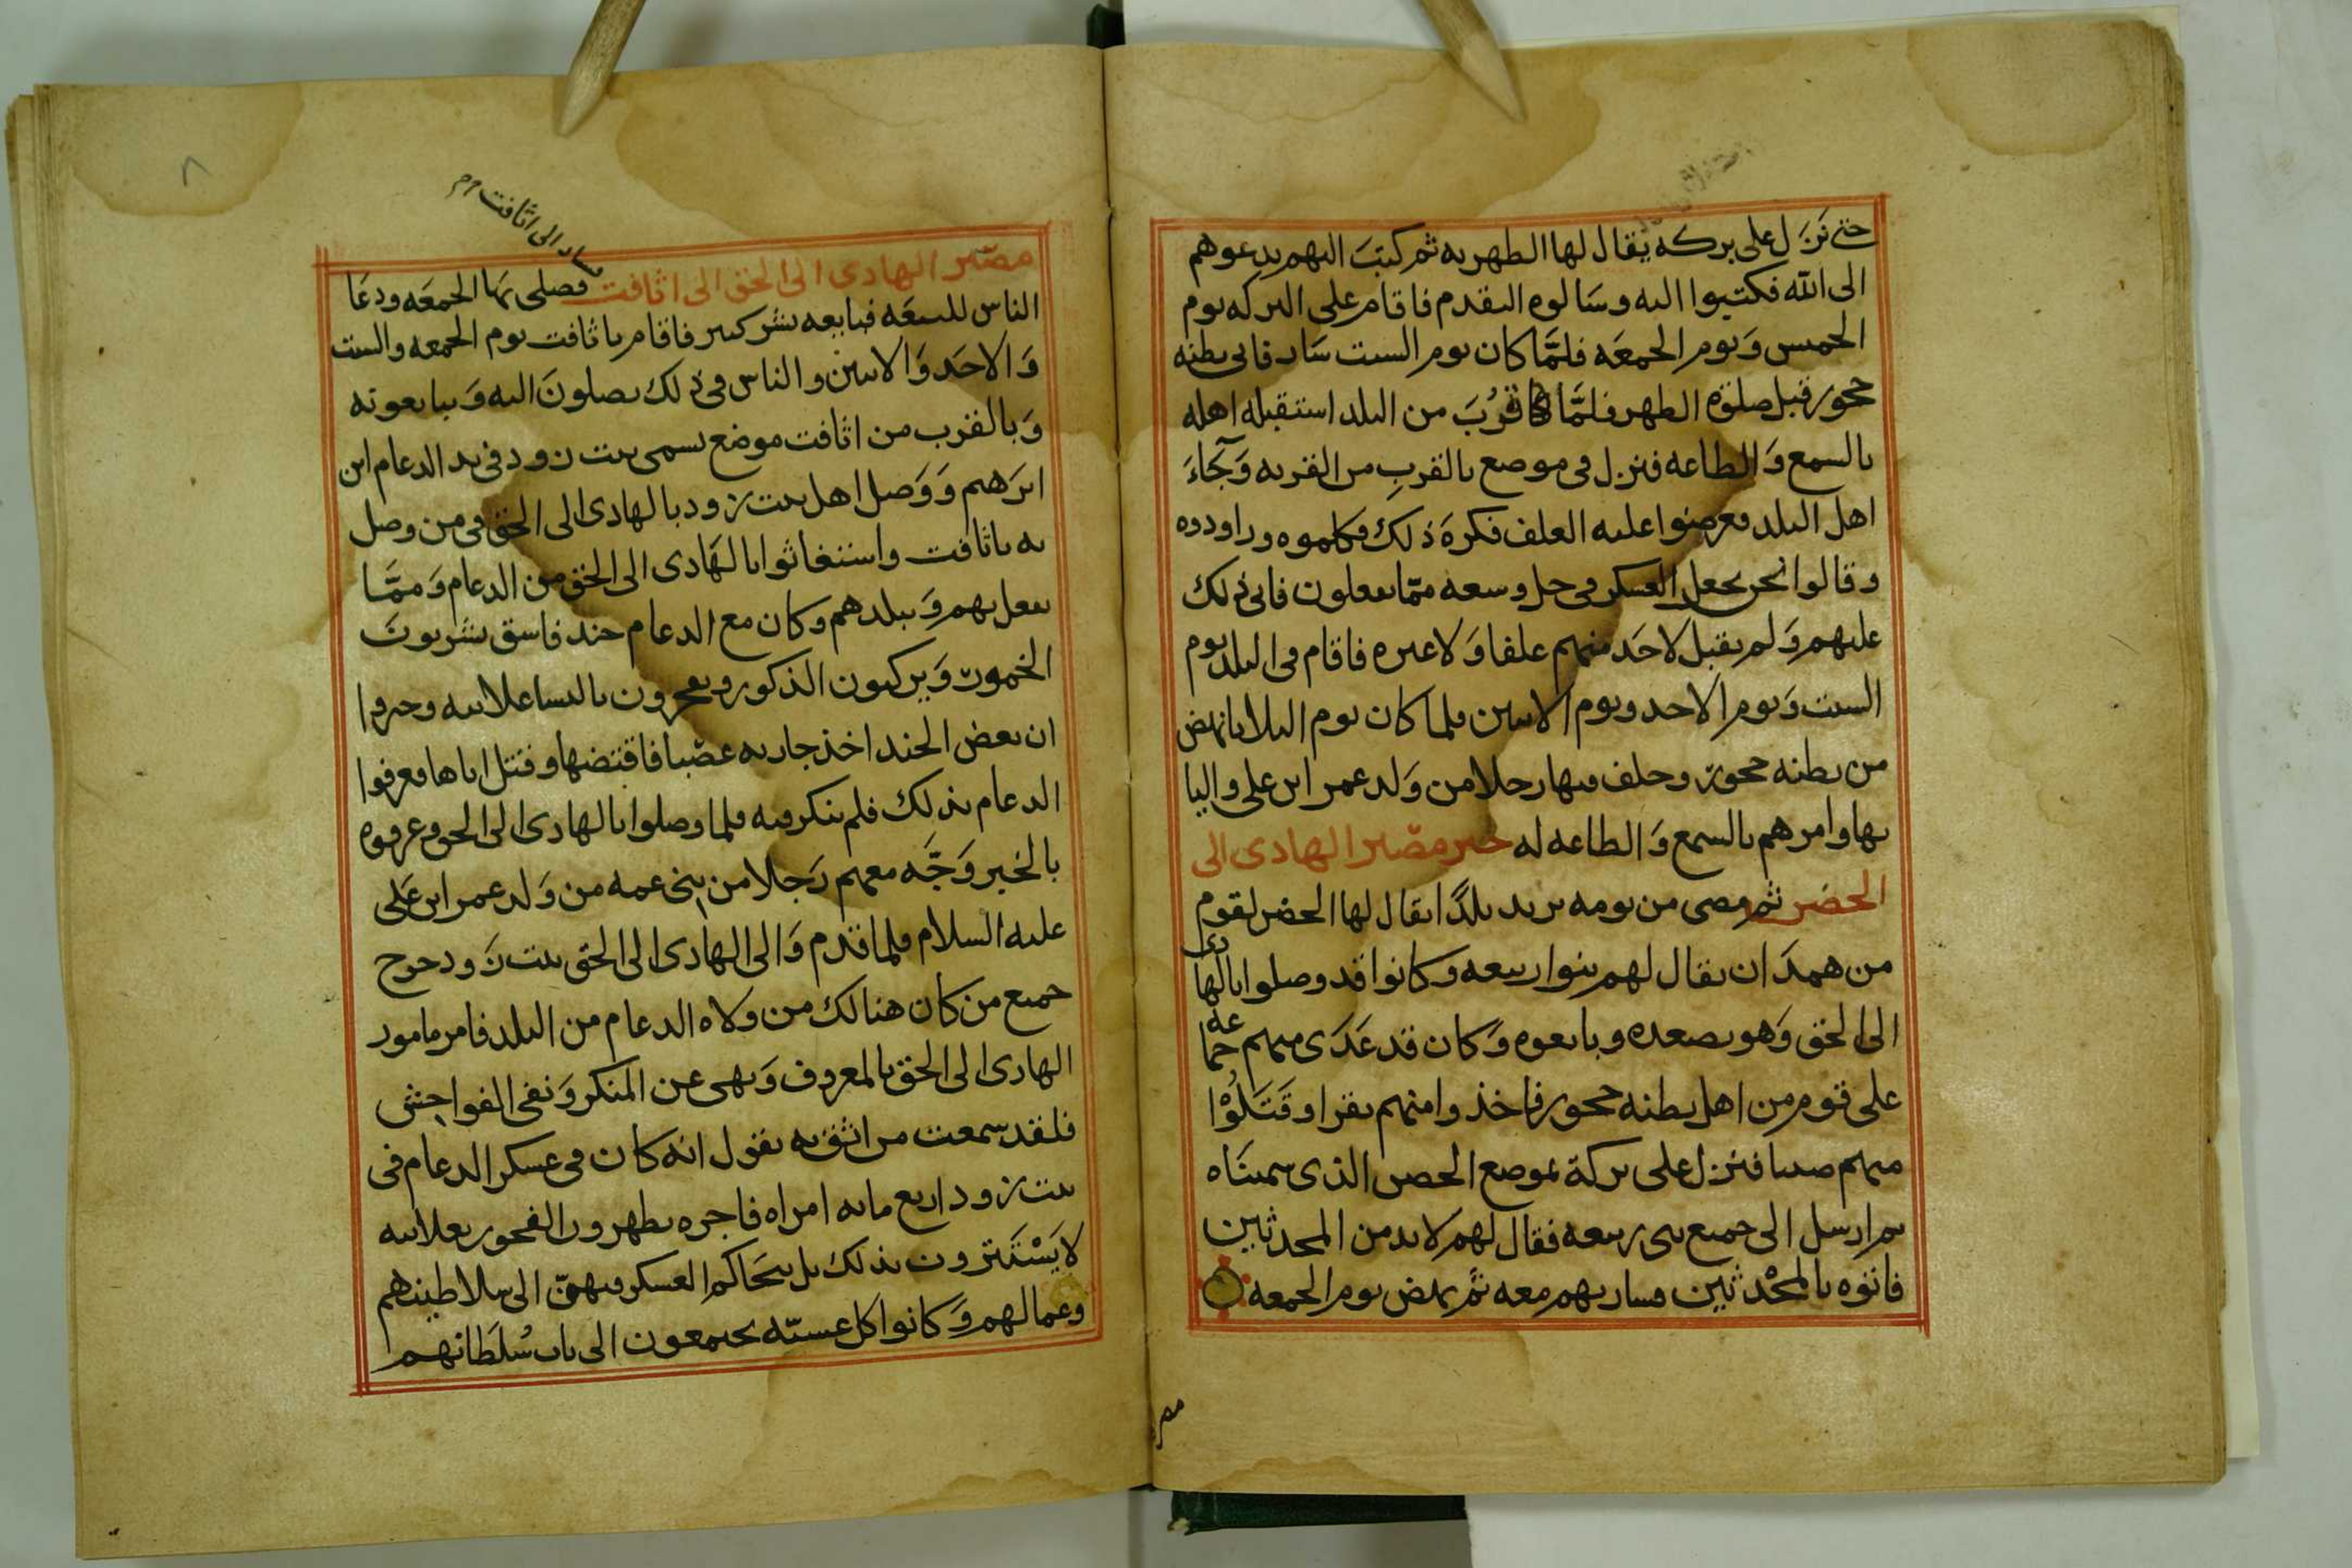 حتى نَزَل على بركه يقال لها الطهريه ثم كتبَ اليهم يدعوهم
الى الله فكتبوا اليه وسَالوه التقدم فاقام على البركه يوم
الخميس وَيوم الجمعَه فلمَّا كان يوم السبت سَار فاتى بطنه
حجور قبل صلوة الظهر فلمَّا قرُبَ من البلد استقبله اهله
بالسمع وَالطاعه فنزل في موضع بالقربِ من القريه وَجَآءَ
اهل البلد فعرضوا عليه العلف فكرهَ ذلك فكلموه وراودوه
وقالوا نحن نجعل العسكر في حل وسعه ممّا يفعلون فابى ذلك
عليهم وَلم يقبل لاحَد منهم علفا وَلا غيره فاقام في البلد يوم
السبت وَيوم الاحد ويوم الاثنين فلما كان يوم الثلاثا نهض
من بطنه حجور وخلف فيها رجلا من وَلد عمر ابن علي واليا
بها وامرهم بالسمع وَالطاعه له خبر مصير الهادى الى
الحضر ثم مضى من يومه يريد بلدًا يقال لها الحضر لقوم
من همدَان يقال لهم بنوا ربيعه وكانوا قد وصلوا بالهادى
الى الحق وَهو بصعده وبايعوه وَكان قد عَدَى منهم جماعه
على قوم من اهل بطنه حجور فاخذوا منهم بقرا وقَتَلُوْا
منهم صبيا فنزل على بركة بموضع الحصن الذى سميناه
ثم ارسل الى جميع بنى ربيعه فقال لهم لابد من المحدثين
فاتوه بالمحْدثين فسار بهم معه ثمَّ نهض يوم الجمعه
مصير
سار الى اثافت
مصير الهادى الى الحق الى اثافت فصلى بهَا الجمعَه ودعَا
الناس للبيعَه فبايعه بشر كثير فاقام باثافت يوم الجمعه والسبت
وَالاحَد وَالاثنين والناس في ذلك يصلونَ اليه وَيبايعونه
وَبالقرب من اثافت موضع يسمى بيت زود في يد الدعام ابن
ابرَهيم وَوَصل اهل بيت زود بالهادى الى الحق في من وصل
به باثافت واستغاثوا بالهَادى الى الحق من الدعام وَممَّا
يفعل بهم وَببلدهم وكان مع الدعام جند فاسق يشربونَ
الخمور وَيركبون الذكور ويفجرون بالنسا علانيه وخبروا
ان بعض الجند اخذ جاريه غصْبا فاقتضها وقتل اباها فعرفوا
الدعام بذلك فلم ينكر فيه فلما وصلوا بالهادى الى الحق وعرفوه
بالخبر وَجَّه معهم رَجلا من بنى عمه من وَلد عمر ابن عَلى
عليه السلام فلما قدم وَالى الهادى الى الحق بيت زَود خرج
جميع من كان هنالك من ولاه الدعام من البلد فامر مامور
الهادى الى الحق بالمعروف وَنهى عن المنكر وَنفى الفواحش
فلقد سمعت من اثق به يقول انه كان في عسكر الدعام في
بيت زود اربع مايه امراه فاجره يظهرون الفجور بعلانيه
لا يَسْتَترون بذلك بل يتحَاكم العسكر فيهنّ الى سلاطينهم
وعمالهم وَكانوا كل عشيّه يجتمعون الى باب سُلطَانهم